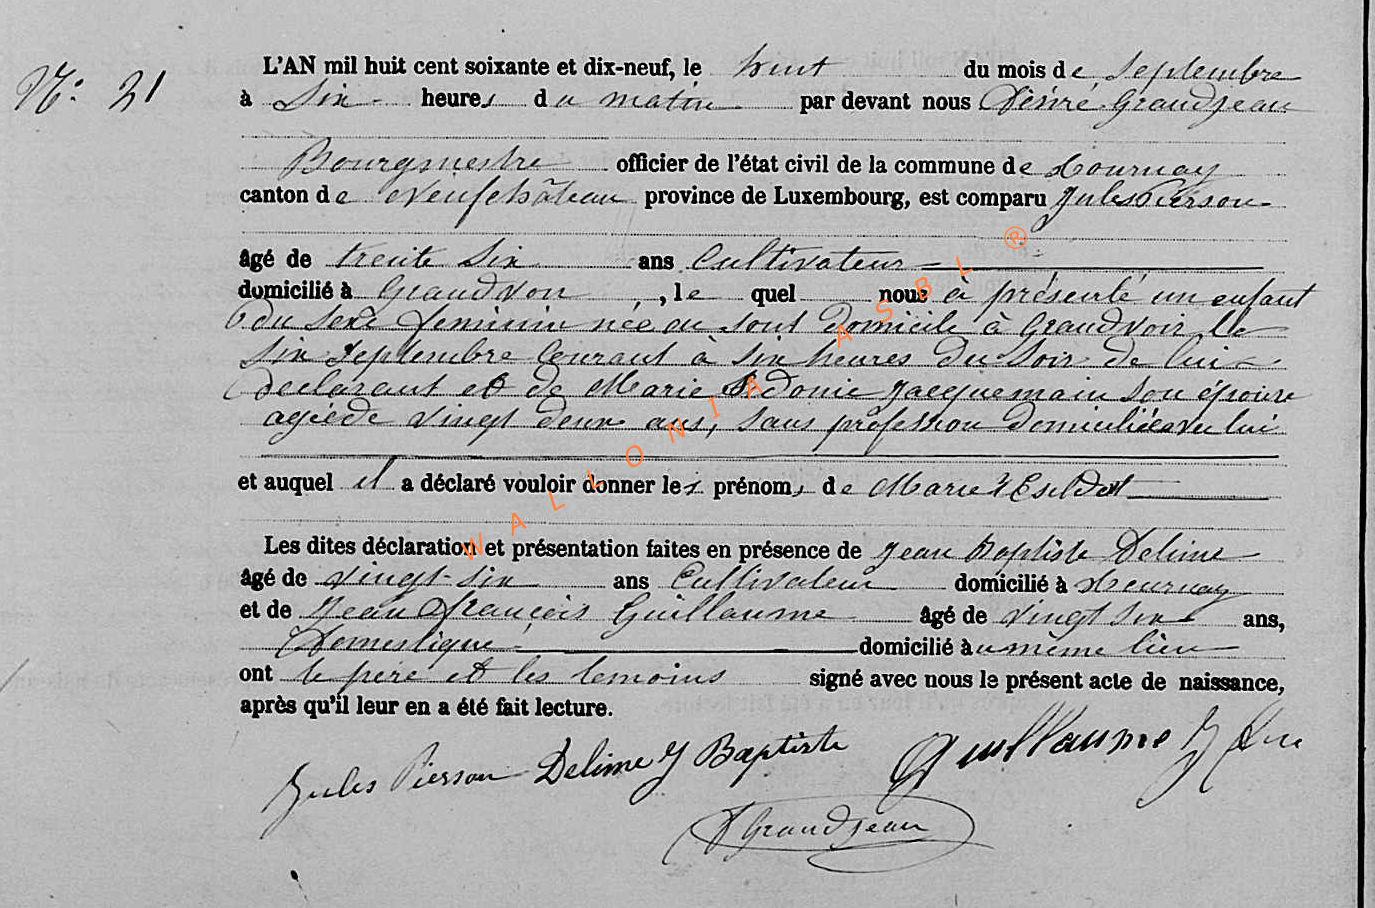 N°. 21
L'AN mil huit cent soixante et dix-neuf, le huit du mois de Septembre
à Six heures du matin par devant nous Désiré Grandjean
Bourgmestre officier de l'état civil de la commune de Tournay
canton de Neufchâteau province de Luxembourg, est comparu Jules Pierson
âgé de trente Six ans Cultivateur
domicilié à Grandvoir, le quel nous à présenté un enfant
du sexe feminin née en sont Domicile à Grandvoir le
six Septembre Courant à six heures Du Soir de lui
declarant et de Marie Sidonie Jacquemain son épouse
agéede vingt deux ans, sans profession Domiciliée avec lui
et auquel il a déclaré vouloir donner les prénoms de Marie
Les dites déclaration et présentation faites en présence de Jean Baptiste Delime
âgé de vingt-six ans Cultivateur domicilié à Tournay
et de Jean François Guillaume âgé de vingt six ans,
Domestique domicilié au même lieu
ont le père et les temoins signé avec nous le présent acte de naissance,
après qu'il leur en a été fait lecture.
Jules Pierson Delime J Baptiste Guillaume J
Grandjean
WALLONIA ASBL ®